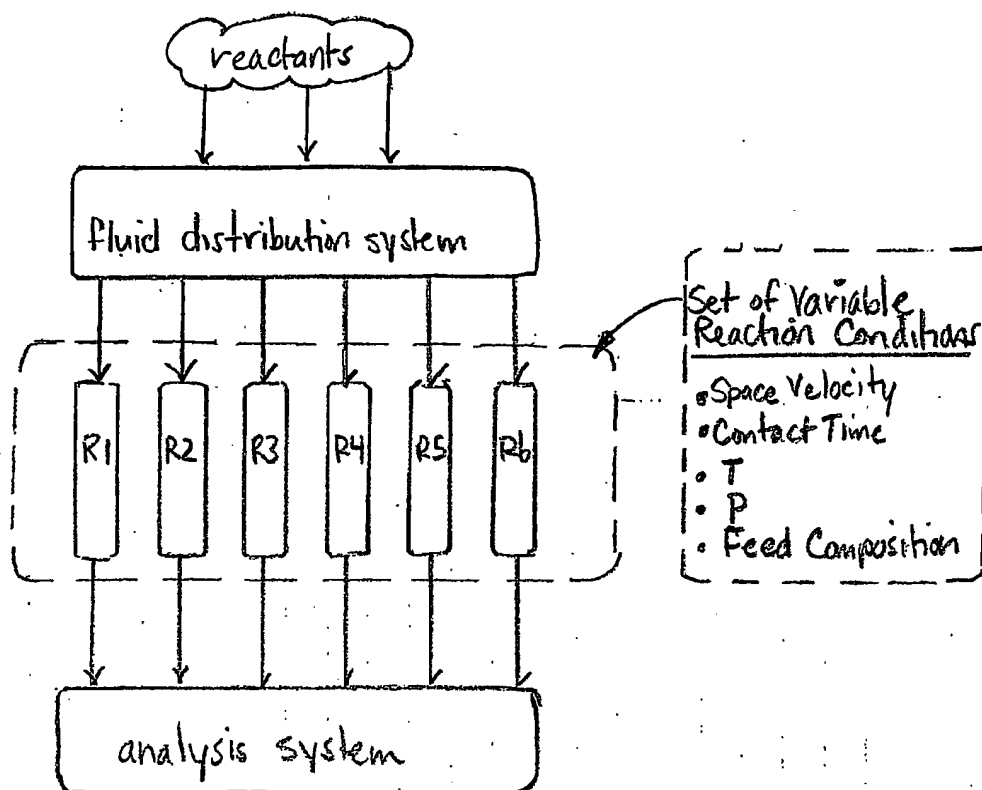 reactants
fluid distribution system
Set of Variable
Reaction Conditions
• Space Velocity
• Contact Time
• T
• P
• Feed Composition
R1 R2 R3 R4 R5 R6
analysis system